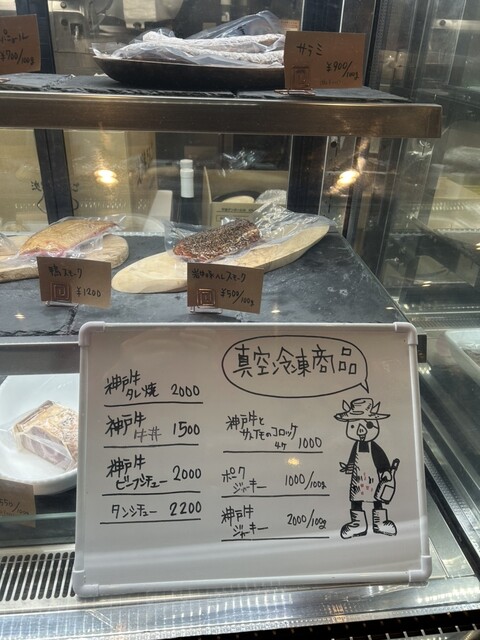 ¥700/100g
サラミ
¥900/100g
鴨スモーク
¥1200
¥500/100g
真空冷凍商品
神戸牛
タレ焼 2000
神戸牛
牛丼 1500
神戸牛
ビーフシチュー 2000
タンシチュー 2200
神戸牛と
サツマイモのコロッケ
4ケ 1000
ポーク
ジャーキー 1000/100g
神戸牛
ジャーキー 2000/100g